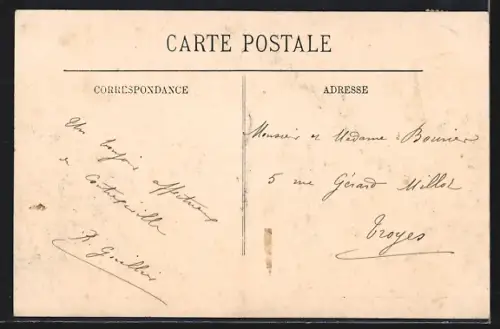 CARTE POSTALE
CORRESPONDANCE
ADRESSE
Un bonjour affectueux
de
Monsieur et Madame Bouvier
5 rue Gérard Millot
Troyes